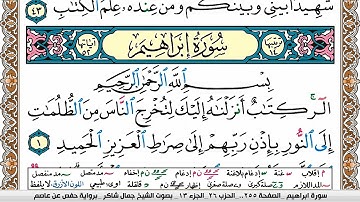 شَهِيدًۢا بَيْنِى وَبَيْنَكُمْ وَمَنْ عِندَهُۥ عِلْمُ ٱلْكِتَٰبِ ٤٣
سُورَةُ إِبْرَاهِيم
بِسْمِ ٱللَّهِ ٱلرَّحْمَٰنِ ٱلرَّحِيمِ
الٓر ۚ كِتَٰبٌ أَنزَلْنَٰهُ إِلَيْكَ لِتُخْرِجَ ٱلنَّاسَ مِنَ ٱلظُّلُمَٰتِ
إِلَى ٱلنُّورِ بِإِذْنِ رَبِّهِمْ إِلَىٰ صِرَٰطِ ٱلْعَزِيزِ ٱلْحَمِيدِ ١
سورة ابراهيم الصفحة ٢٥٥ الحزب ٢٦ الجزء ١٣ بصوت الشيخ جمال شاكر برواية حفص عن عاصم